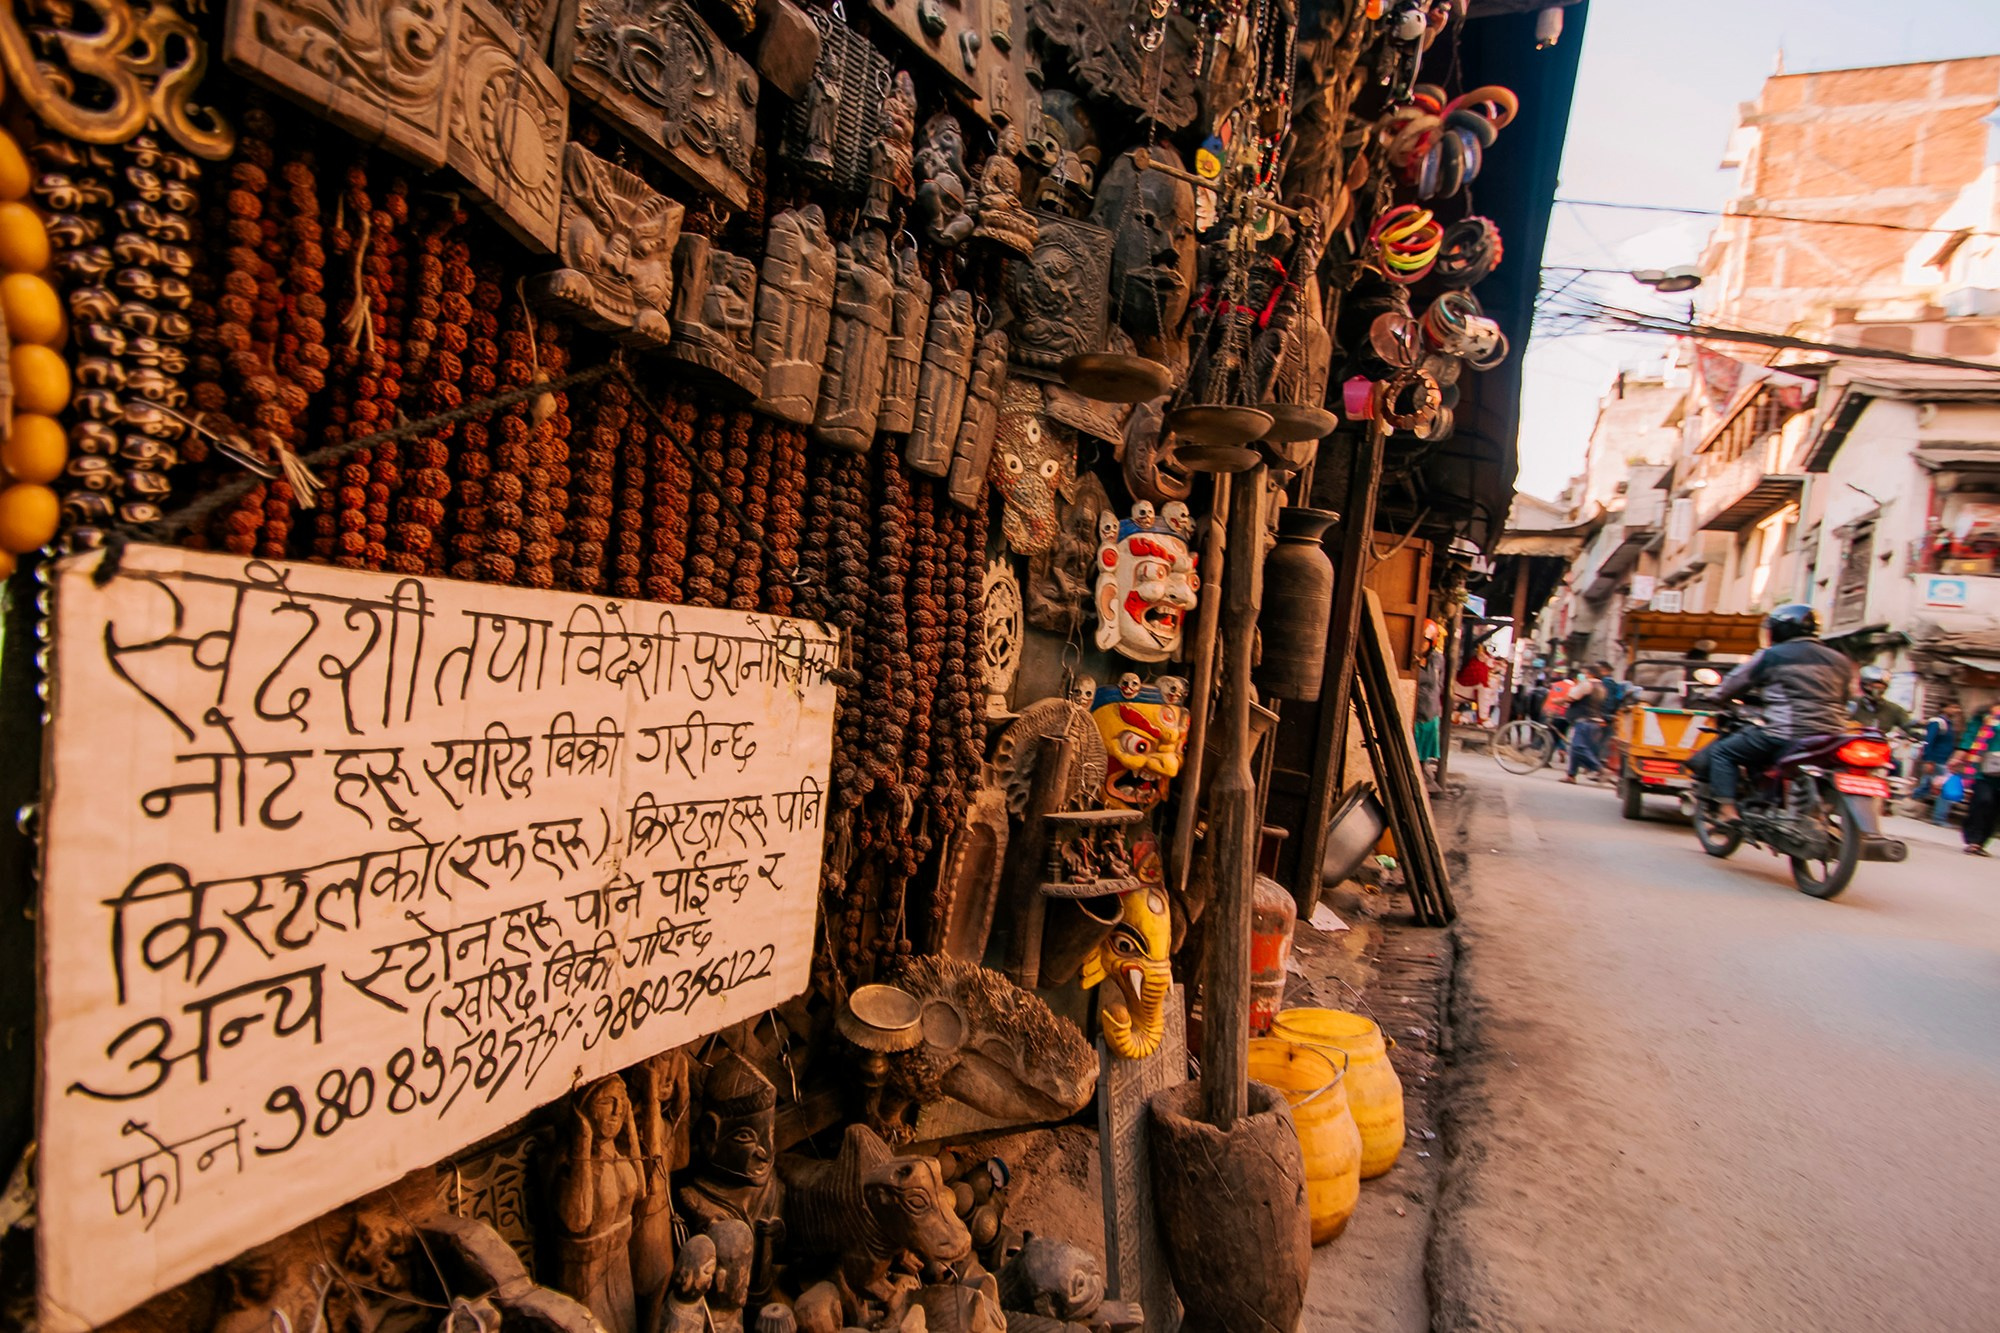 स्वदेशी तथा विदेशी पुरानो सिक्का
नोट हरू खरिद बिक्री गरीन्छ
क्रिस्टलको (रफ हरू) क्रिस्टलहरू पनि
अन्य स्टोन हरू पनि पाईन्छ र
(खरिद बिक्री गरिन्छ
फोन नं: 9808958575 / 9860356122